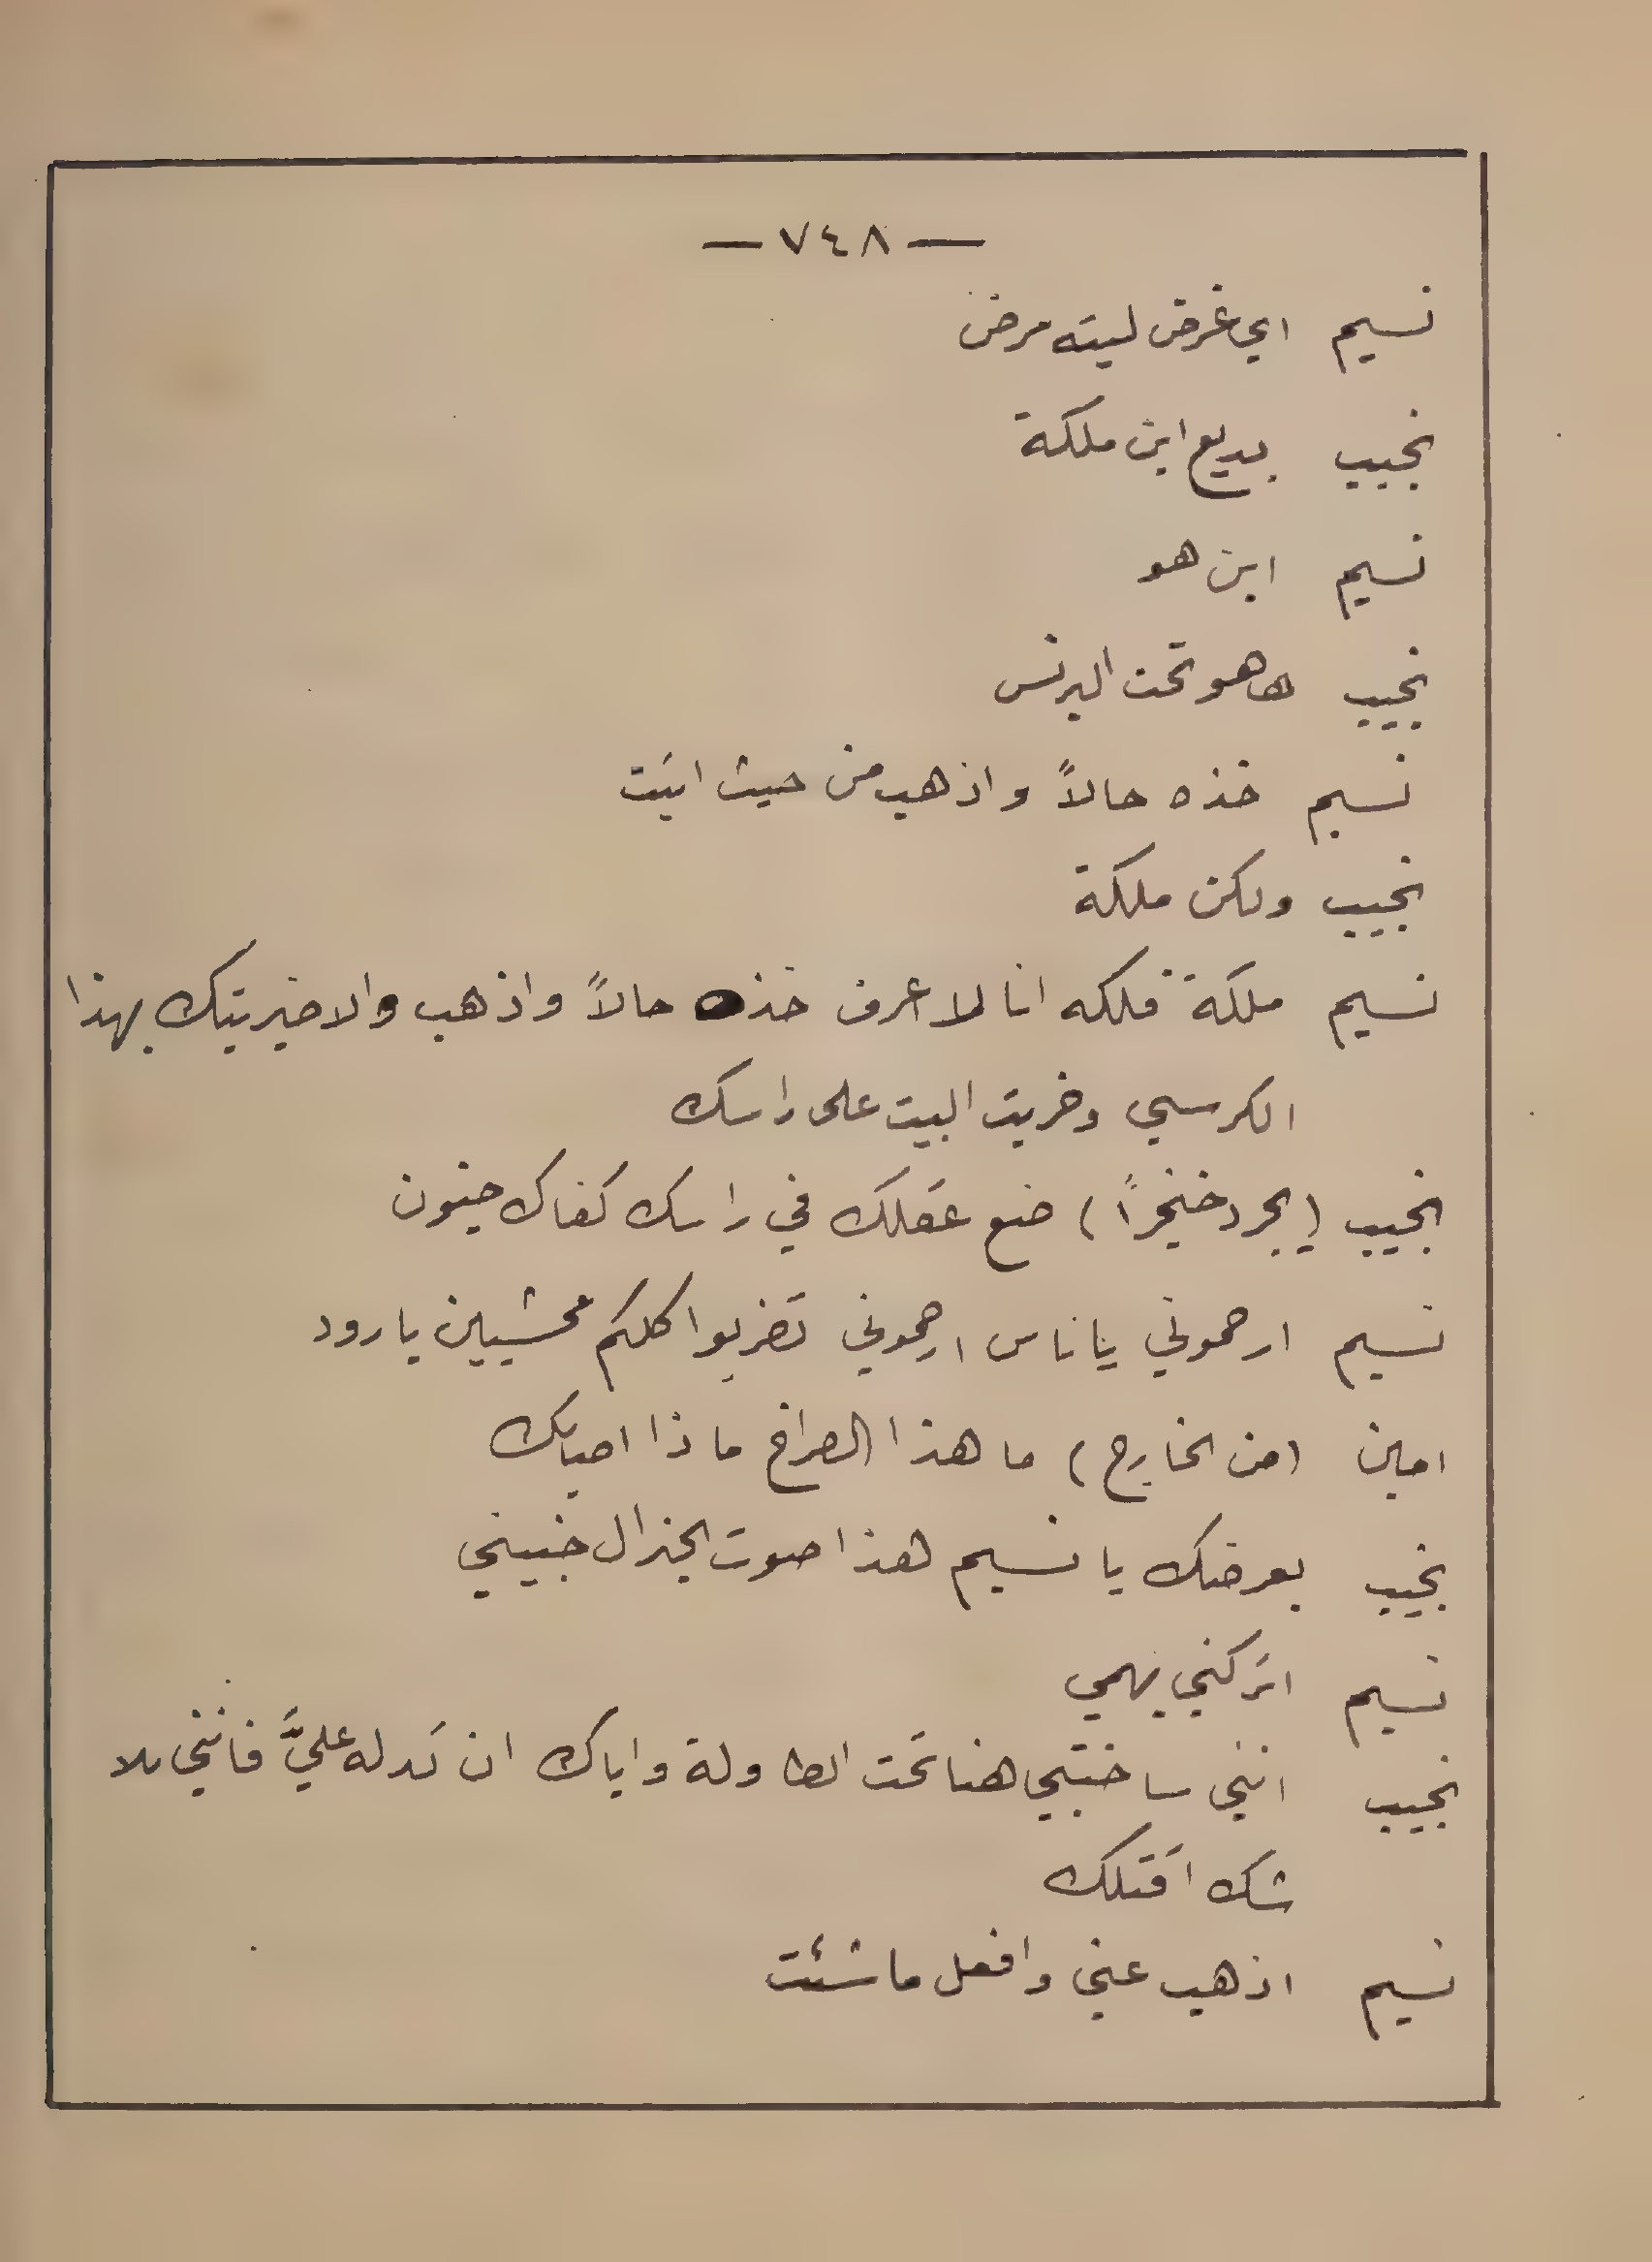 — ٧٤٨ —
نسيم اي غرض ليته مرض
نجيب بديع ابن ملكة
نسيم اين هو
نجيب ها هو تحت البرنس
نسيم خذه حالاً واذهب من حيث اتيت
نجيب ولكن ملكة
نسيم ملكة فلكه انا لا اعرف خذه حالاً واذهب والا ضربتك بهذا
الكرسي وخربت البيت على راسك
نجيب (يجرد خنجراً) ضع عقلك في راسك كفاك جنون
نسيم ارحموني يا ناس ارحموني تضربوا كلكم محششين يا رود
امين (من الخارج) ما هذا الصراخ ماذا اصابك
نجيب بعرضك يا نسيم هذا صوت الجنرال خبيني
نسيم اتركني بهمي
نجيب انني ساختبي هنا تحت الطاولة واياك ان تدله عليَّ فانني بلا
شك اقتلك
نسيم اذهب عني وافعل ما شئت